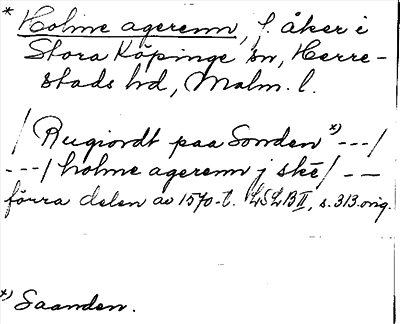 * Holme agerenn, f. åker i
Stora Köpinge sn, Herre-
stads hd, Malm. l.
/ Rugiordt paa Sonden *) --- /
--- / holme agerenn j skē / --
förra delen av 1570-t. LSLB II, s. 313 orig.
*) Saanden.